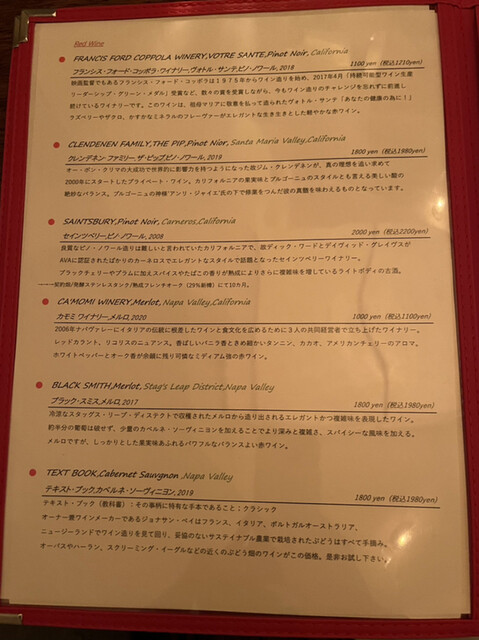 Red Wine
FRANCIS FORD COPPOLA WINERY,VOTRE SANTE,Pinot Noir, California
フランシス・フォード・コッポラ・ワイナリー,ヴォトル・サンテ,ピノ・ノワール, 2018 1100 yen (税込1210yen)
映画監督でもあるフランシス・フォード・コッポラは１９７５年からワイン造りを始め、2017年4月「持続可能型ワイン生産
リーダーシップ・グリーン・メダル」受賞など、数々の賞を受賞しながら、今もワイン造りのチャレンジを忘れずに前進し
続けているワイナリーです。このワインは、祖母マリアに敬意を払って造られたヴォトル・サンテ「あなたの健康の為に！」
ラズベリーやザクロ、かすかなミネラルのフレーヴァーがエレガントな生き生きとした軽やかな赤ワイン。
CLENDENEN FAMILY,THE PIP,Pinot Noir, Santa Maria Valley,California
クレンデネン ファミリー,ザ・ピップ,ピノ・ノワール, 2019 1800 yen (税込1980yen)
オー・ボン・クリマの大成功で世界的に影響力を持つようになった故ジム・クレンデネンが、真の理想を追い求めて
2000年にスタートしたプライベート・ワイン。カリフォルニアの果実味とブルゴーニュのスタイルとも言える楽しい酸の
絶妙なバランス。ブルゴーニュの神様"アンリ・ジャイエ"氏の下で修業をつんだ彼の真髄を味わえるものとなっています。
SAINTSBURY,Pinot Noir, Carneros,California
セインツベリー,ピノ・ノワール, 2008 2000 yen (税込2200yen)
良質なピノ・ノワール造りは難しいと言われていたカリフォルニアで、故ディック・ワードとデイヴィッド・グレイヴスが
AVAに認証されたばかりのカーネロスでエレガントなスタイルで話題となったセインツベリーワイナリー。
ブラックチェリーやプラムに加えスパイスやたばこの香りが熟成によりさらに複雑味を増しているライトボディの古酒。
契約畑/発酵ステンレスタンク/熟成フレンチオーク（29%新樽）にて10カ月。
CA'MOMI WINERY,Merlot, Napa Valley,California
カモミ ワイナリー,メルロ, 2020 1000 yen (税込1100yen)
2006年ナパヴァレーにイタリアの伝統に根差したワインと食文化を広めるために３人の共同経営者で立ち上げたワイナリー。
レッドカラント、リコリスのニュアンス。香ばしいバニラ香ときめ細かいタンニン、カカオ、アメリカンチェリーのアロマ。
ホワイトペッパーとオーク香が余韻に残り可憐なミディアム強の赤ワイン。
BLACK SMITH,Merlot, Stag's Leap District,Napa Valley
ブラック・スミス,メルロ, 2017 1800 yen (税込1980yen)
冷涼なスタッグス・リープ・ディステクトで収穫されたメルロから造り出されるエレガントかつ複雑味を表現したワイン。
約半分の葡萄は破せず、少量のカベルネ・ソーヴィニヨンを加えることでより深みと複雑さ、スパイシーな風味を加える。
メルロですが、しっかりとした果実味あふれるパワフルなバランスよい赤ワイン。
TEXT BOOK,Cabernet Sauvgnon ,Napa Valley
テキスト・ブック,カベルネ・ソーヴィニヨン, 2019 1800 yen (税込1980yen)
テキスト・ブック（教科書）：その事柄に特有な手本であること；クラシック
オーナー兼ワインメーカーであるジョナサン・ペイはフランス、イタリア、ポルトガルオーストラリア、
ニュージーランドでワイン造りを見て回り、妥協のないサステイナブル農業で栽培されたぶどうはすべて手摘み。
オーパスやハーラン、スクリーミング・イーグルなどの近くのぶどう畑のワインがこの価格。是非お試し下さい。